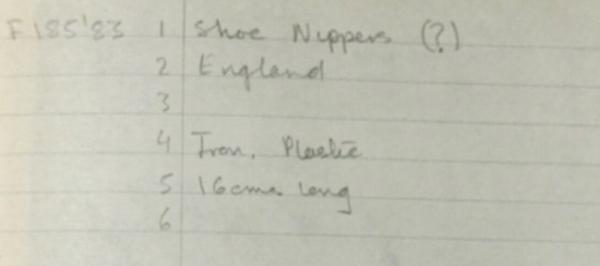 F185'83 1 Shoe Nippers (?)
2 England
3
4 Iron, Plastic
5 16cms. long
6